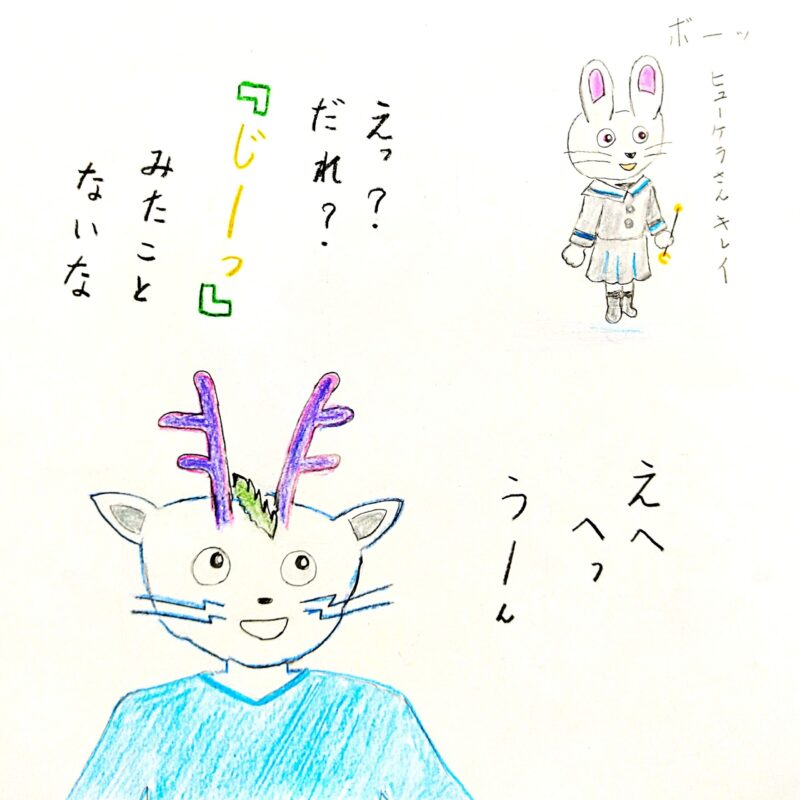 ボーッ
ヒューケラさん キレイ
えっ?
だれ?
『じーっ』
みたこと
ないな
えへ
へっ
うーん